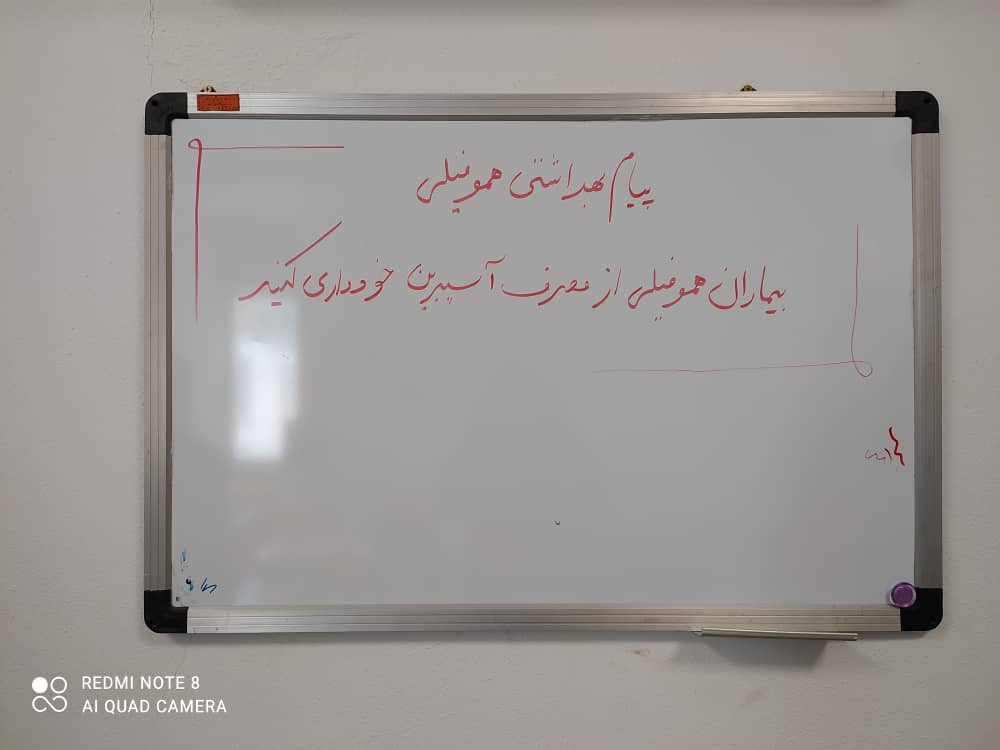 پیام بهداشتی هموفیلی
بیماران هموفیلی از مصرف آسپیرین خودداری کنید
REDMI NOTE 8
AI QUAD CAMERA